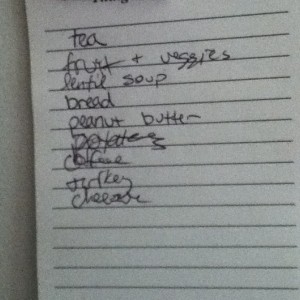 tea
fruit + veggies
lentil soup
bread
peanut butter
potatoes
turkey
cheese